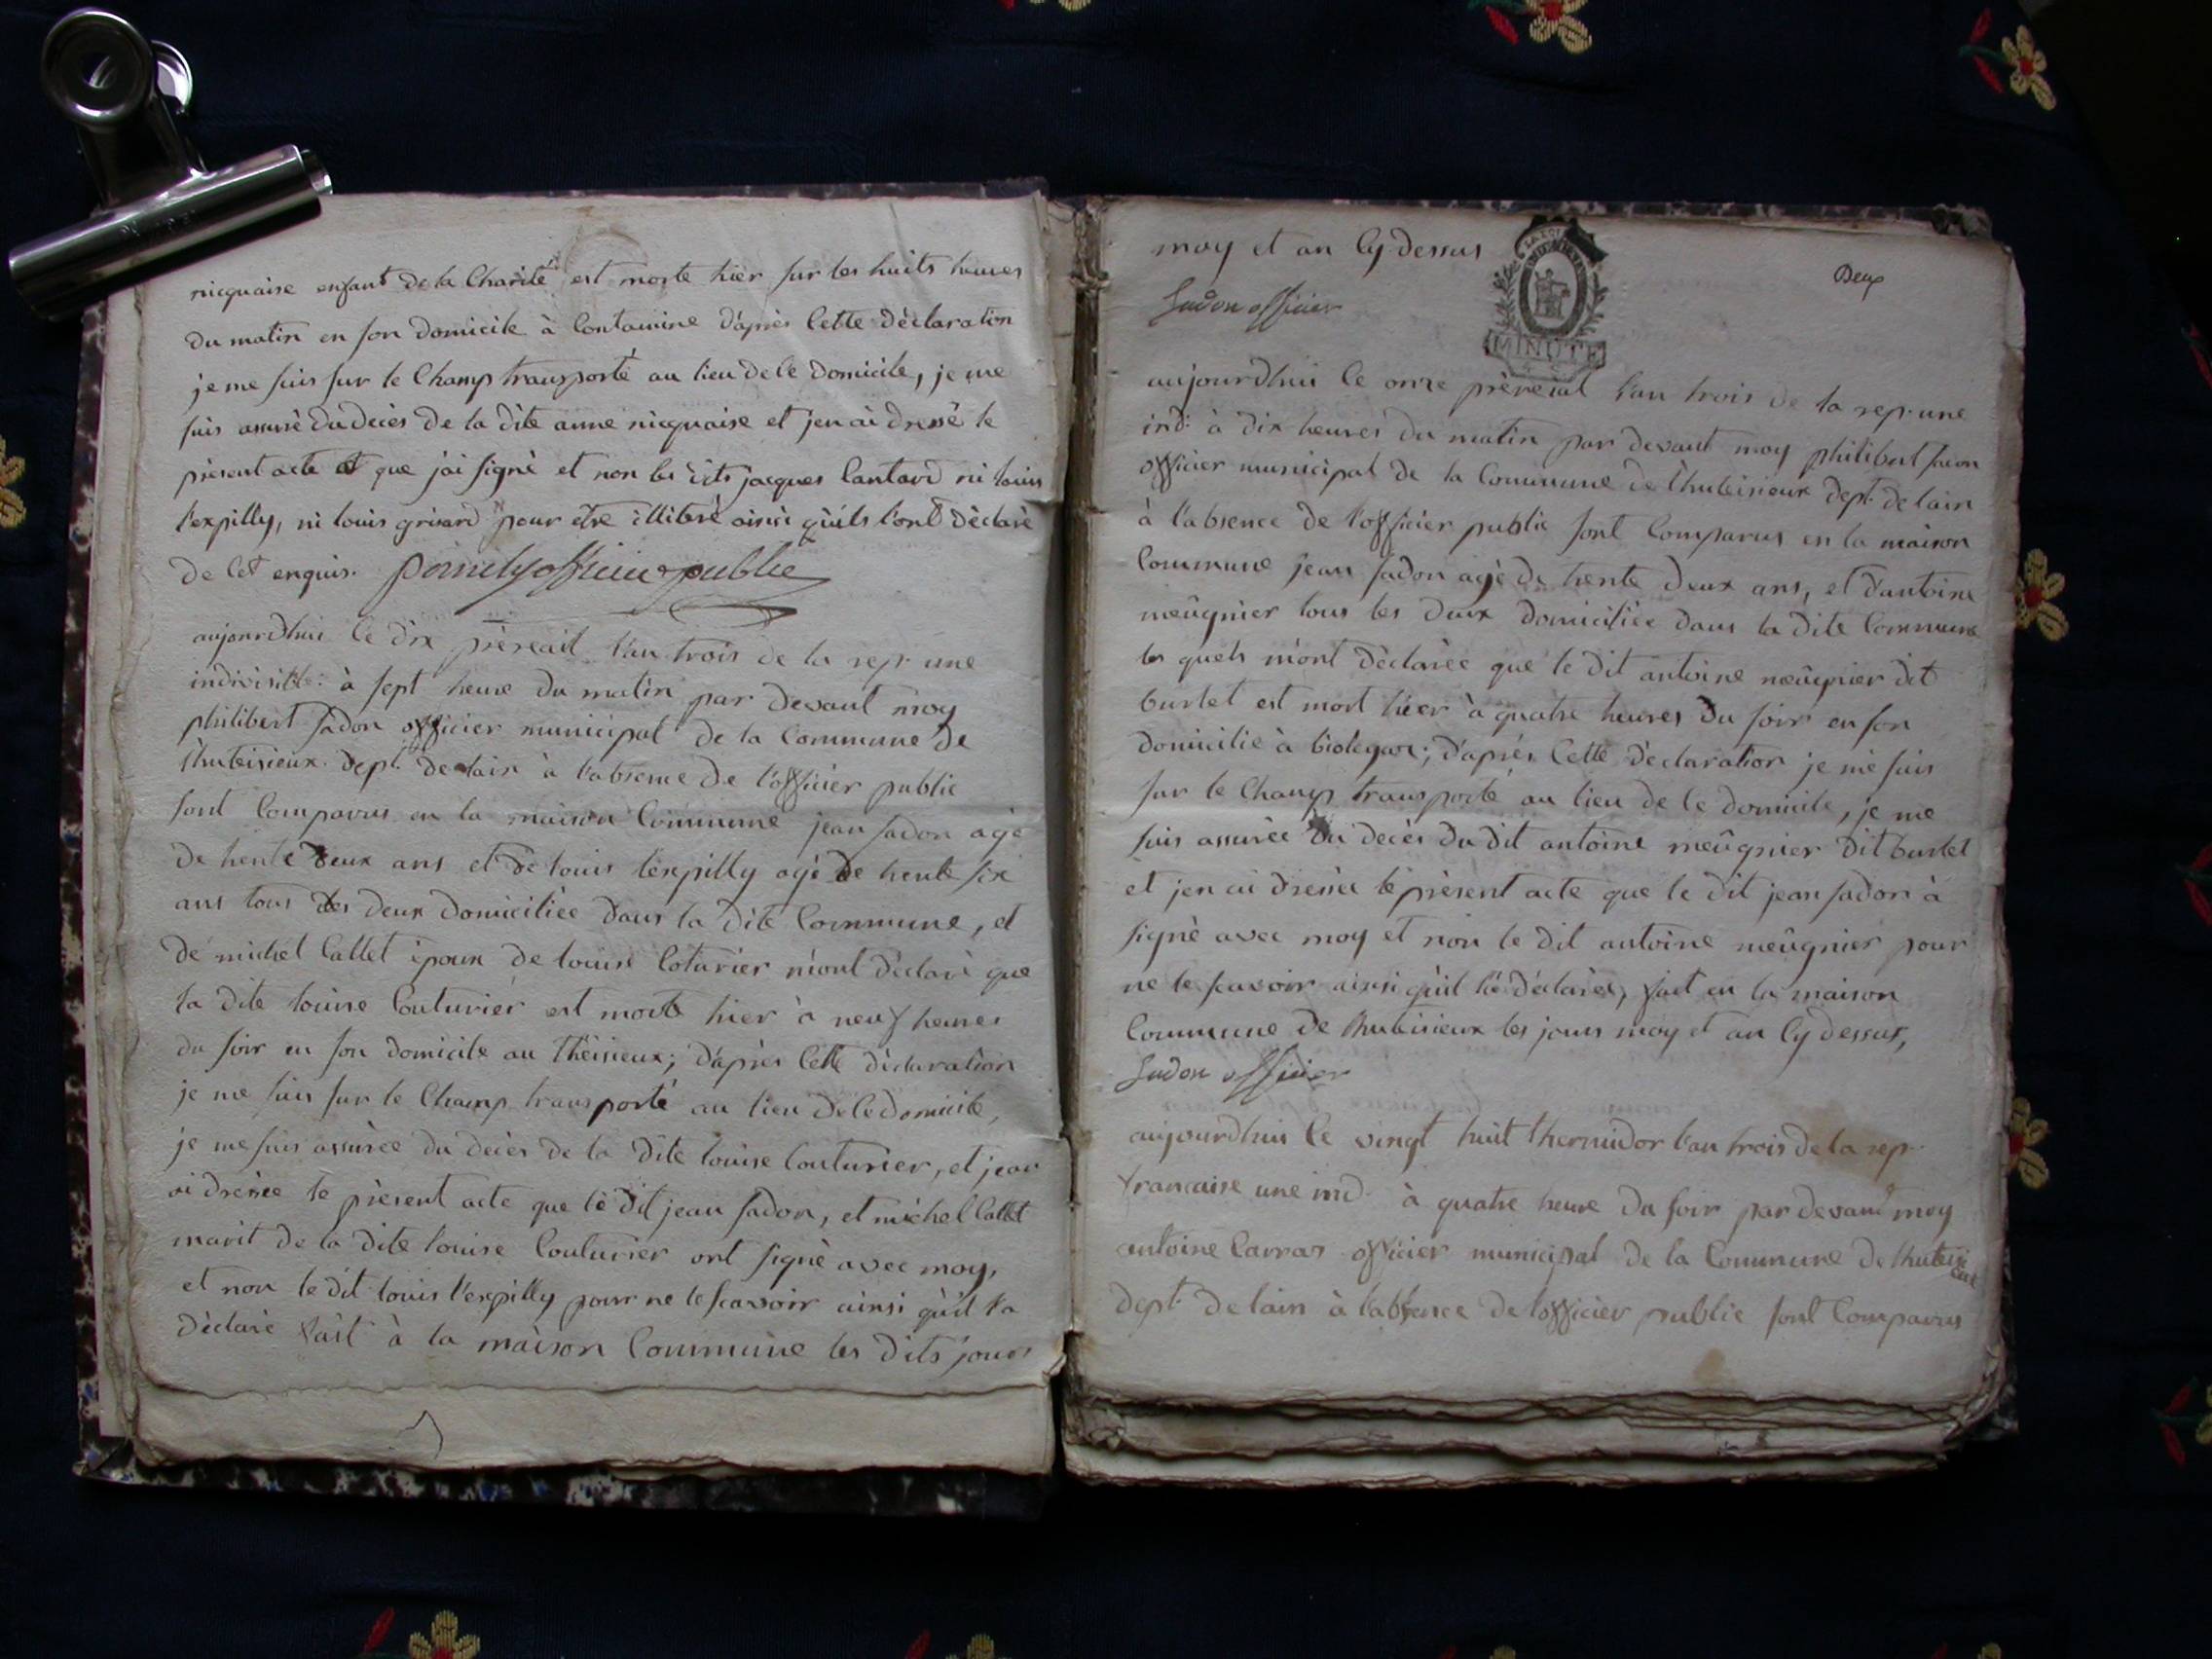 nicquaise enfant de la Charité est morte hier sur les huits heures
du matin en son domicile à Contamine d'après cette déclaration
je me suis sur le Champ transporté au lieu de ce domicile, je me
suis assuré du decès de la dite anne nicquaise et jen ai dressé le
présent acte que jai signé et non les dits jacques Cantard ni louis
l'expilly, ni louis grisard pour etre illiteré ainsi qu'ils l'ont déclaré
de cet enquis. officier public
aujourdhui le dix prereail l'an trois de la rep. une
indivisible: à sept heure du matin par devant moy
philibert sadon officier municipal de la Commune de
thuteisieux dept. de lain à l'absence de l'officier public
sont Comparus en la maison Commune jean sadon agé
de trente deux ans et de louis l'expilly agé de trente six
ans tous les deux domiciliée dans la dite Commune, et
de michel Callet époux de louise Coturier m'ont déclaré que
la dite louise Couturier est morte hier à neuf heures
du soir en son domicile au théisieux; d'après cette déclaration
je me suis sur le Champ transporté au lieu de ce domicile,
je me suis assurée du decès de la dite louise Couturier, et jean
ai dressée le présent acte que le dit jean sadon, et michel Callet
marit de la dite louise Couturier ont signé avec moy,
et non le dit louis l'expilly pour ne le scavoir ainsi qu'il l'a
déclaré fait à la maison Commune les dits jours
moy et an Cy dessus
Deux
Sadon officier
MINUTE
aujourdhui le onze prèreial l'an trois de la rep. une
ind: à dix heures du matin par devant moy philibert sadon
officier municipal de la Commune de thuteisieux dept. de lain
à l'absence de l'officier public sont Comparus en la maison
Commune jean sadon agé de trente deux ans, et d'antoine
meûgnier tous les deux domiciliée dans la dite Commune
les quels m'ont déclarée que le dit antoine meûgnier dit
burlet est mort hier à quatre heures du soir en son
domicilie à; d'après Cette déclaration je me suis
sur le Champ transporté au lieu de ce domicile, je me
suis assurée du decès du dit antoine meûgnier dit burlet
et jen ai dressée le présent acte que le dit jean sadon à
signé avec moy et non le dit antoine meûgnier pour
ne le scavoir ainsi qu'il la déclarée, fait en la maison
Commune de thuteisieux les jours moy et an Cy dessus,
Sadon officier
aujourdhui le vingt huit thermidor l'an trois de la rep.
francaise une ind. à quatre heure du soir par devant moy
antoine Carras officier municipal de la Commune de thuteisieux
dept. de lain à l'absence de l'officier public sont Comparus